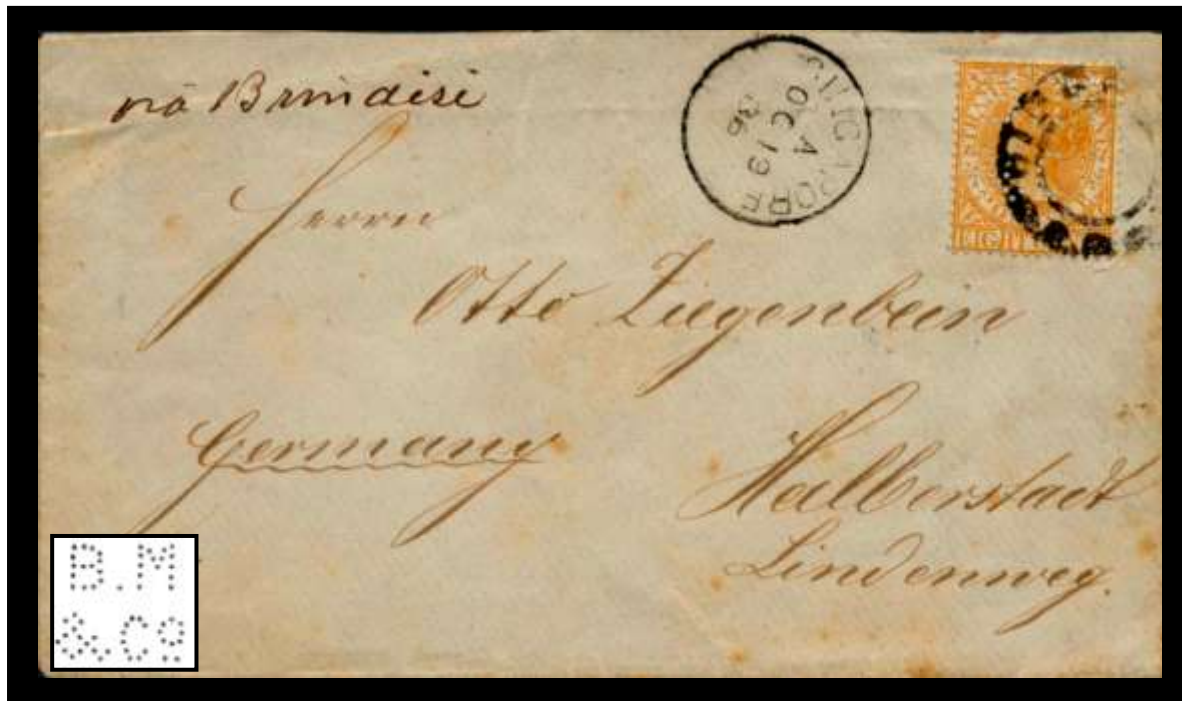 via Brindisi
SINGAPORE
A
OC 19
86
Herrn
Otto Ziegenbein
Germany
Halberstadt
Lindenweg.
B.M
& Co